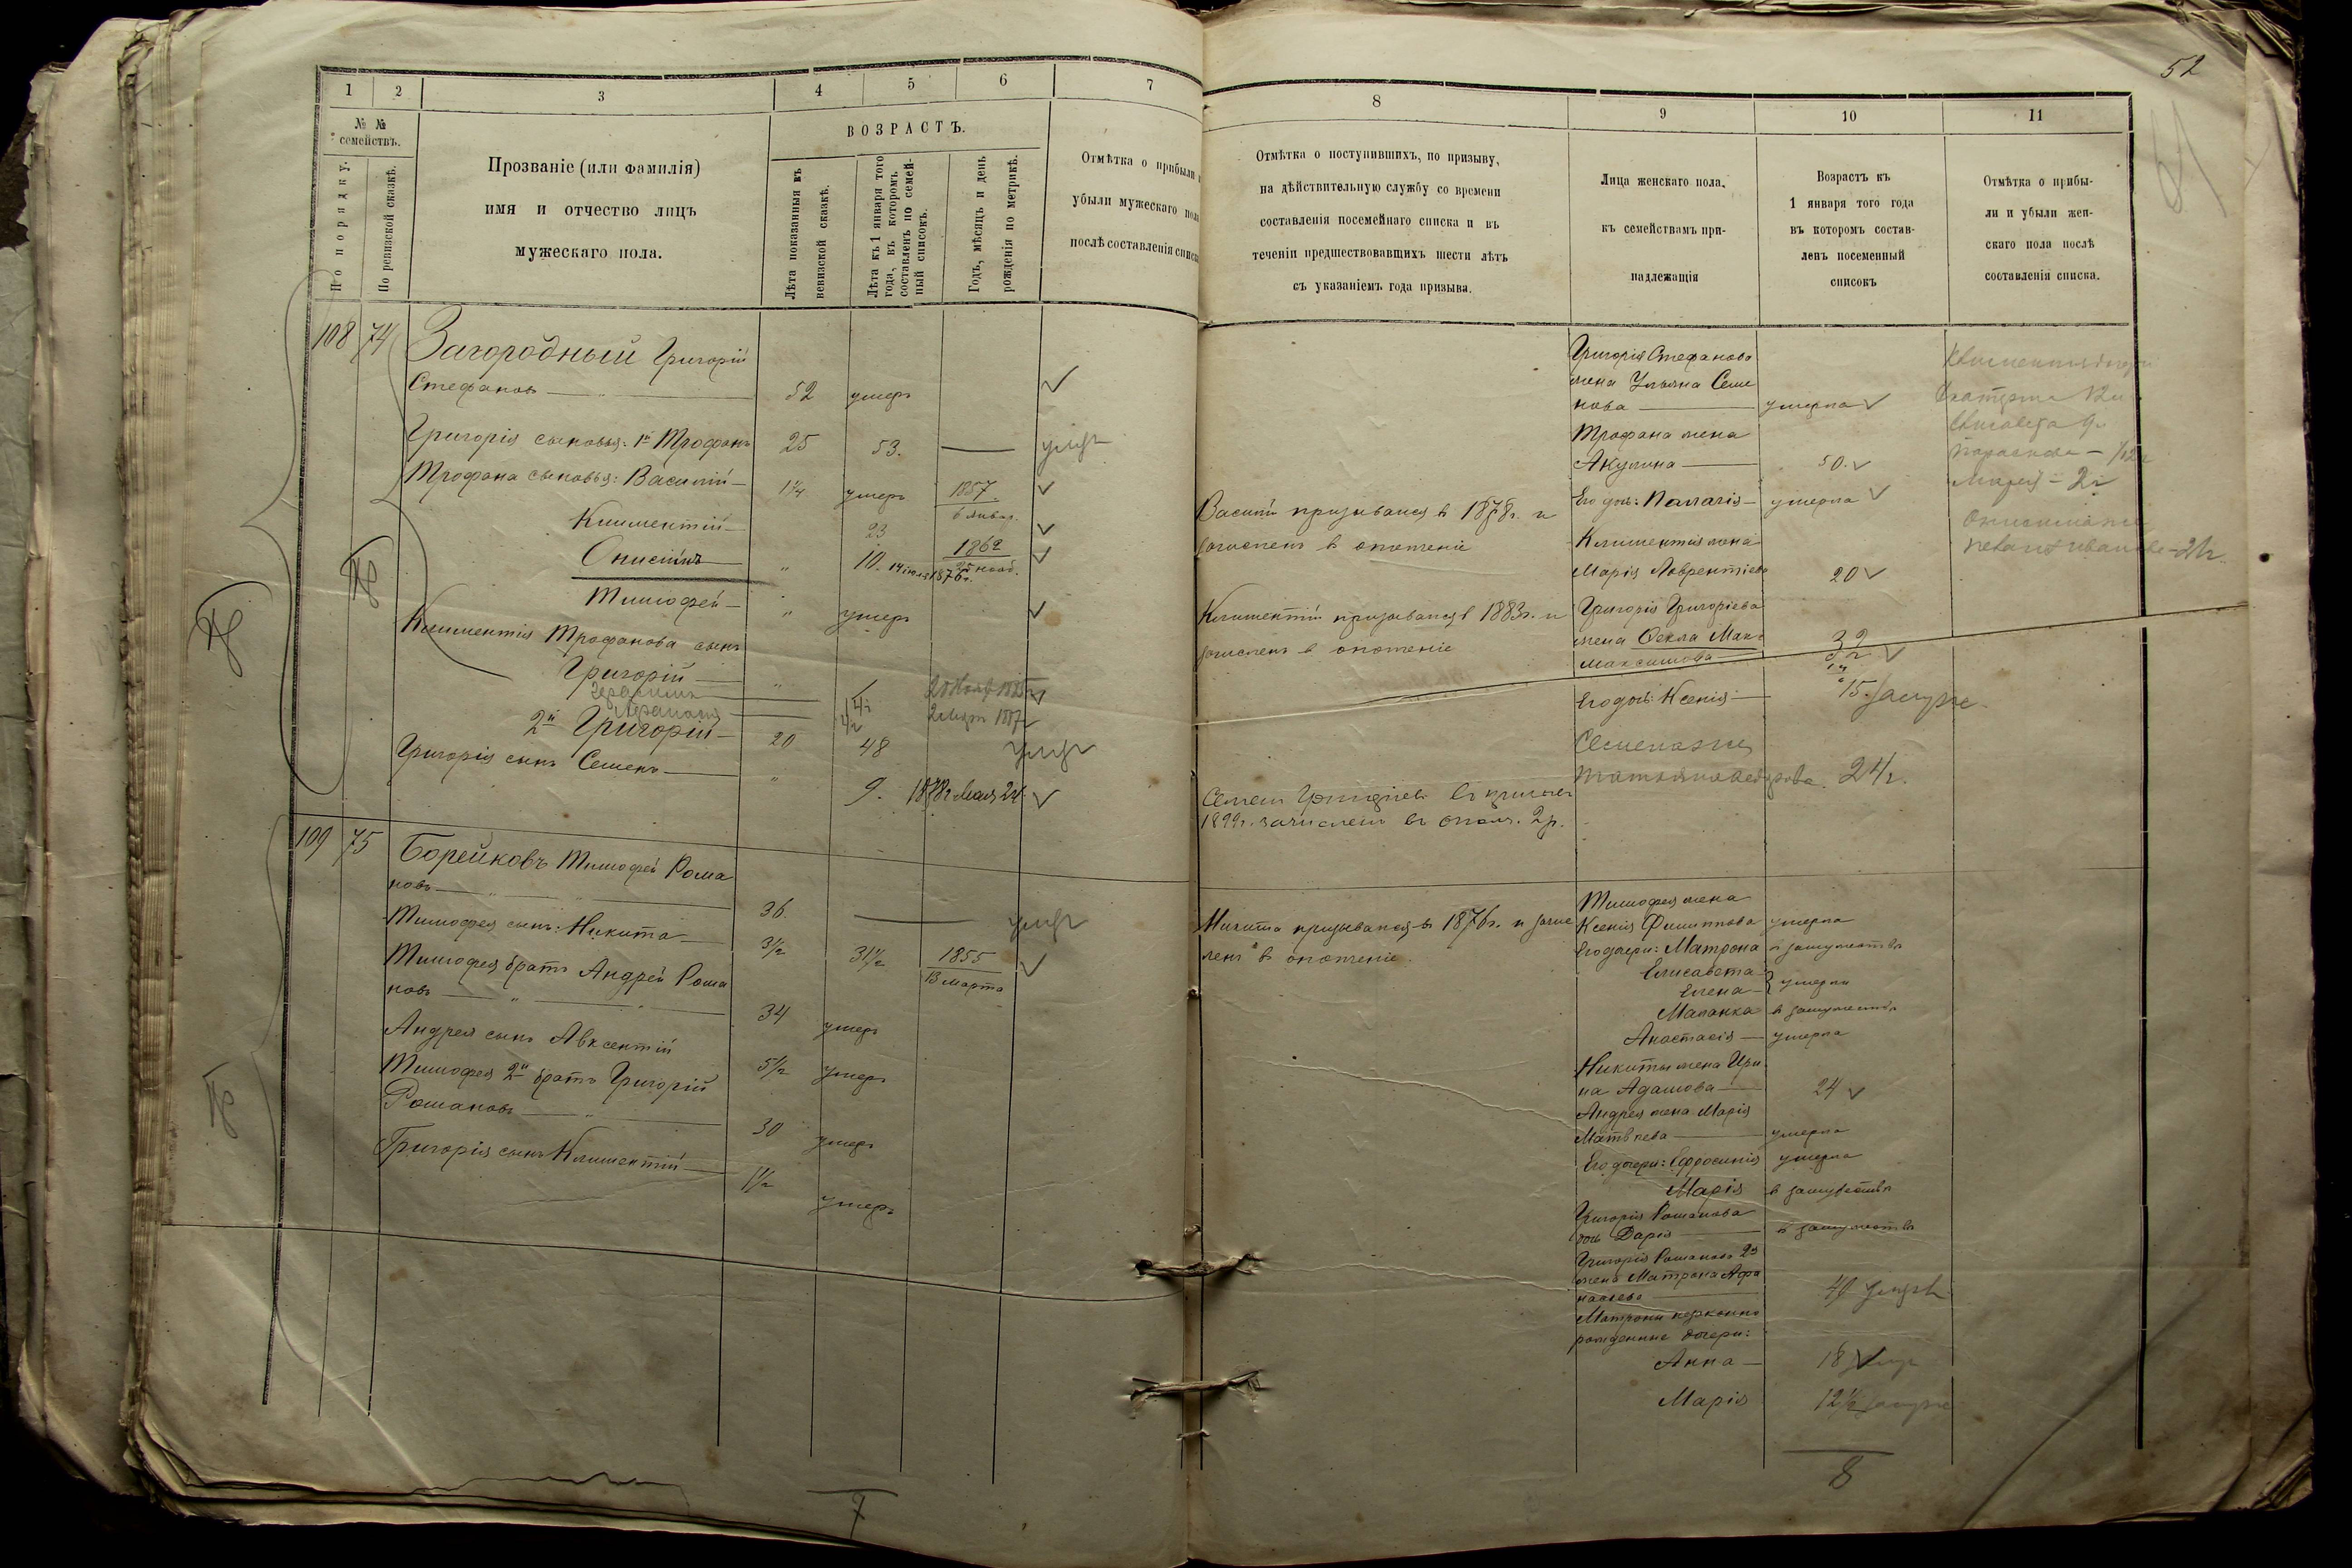 52
1 2 3 4 5 6 7
№ №
семействъ.
По порядку.
По ревизской сказкѣ.
Прозваніе (или фамилія)
имя и отчество лицъ
мужескаго пола.
ВОЗРАСТЪ.
Лѣта показанныя въ
ревизской сказкѣ.
Лѣта къ 1 января того
года, въ которомъ
составленъ по семей-
ный списокъ.
Годъ, мѣсяцъ и день
рожденія по метрикѣ.
Отмѣтка о прибыли и
убыли мужескаго пола
послѣ составленія списка
108 74 Загородный Григорій
Стефановъ — 52 умеръ
Григорія сыновья: 1й Трофимъ 25 53. — умер
Трофима сыновья: Василий 1¼ умеръ 1857.
6 январ.
Климентій 23 1862
Онисимъ " 10. 14 іюля 1876г. 25 нояб.
Тимофей " умеръ
Климентія Трофимова сынъ
Григорій " 1
Герасимъ ½ 1885
½ 2 1887
2й Григорій 20 48 умер
Григорія сынъ Семенъ " 9. 1878г Мая 24
109 75 Борейковъ Тимофей Рома
новъ 36. — умер
Тимофея сынъ: Никита 3½ 31½ 1855
13 марта
Тимофея братъ Андрей Рома
новъ 34 умеръ
Андрея сынъ Авксентій 5½ умеръ
Тимофея 2й братъ Григорій
Романовъ 30 умеръ
Григорія сынъ Климентій 1½ умеръ
7
8 9 10 11
Отмѣтка о поступившихъ, по призыву,
на дѣйствительную службу со времени
составленія посемейнаго списка и въ
теченіи предшествовавщихъ шести лѣтъ
съ указаніемъ года призыва.
Лица женскаго пола,
къ семействамъ при-
надлежащія
Возрастъ къ
1 января того года
въ которомъ состав-
ленъ посеменный
списокъ
Отмѣтка о прибы-
ли и убыли жен-
скаго пола послѣ
составленія списка.
Василій призывался в 1878г. и
зачисленъ в ополченіе
Климентій призывался в 1883г. и
зачисленъ в ополченіе
Семенъ Григоріев в призыв
1899г. зачисленъ въ ополч. 2р.
Никита призывался в 1876г. и зачис
ленъ в ополченіе.
Григорія Стефанова
жена Ульяна Семе
нова — умерла
Трофима жена
Акулина — 50.
Его дочь: Палагія — умерла
Климентія жена
Марія Лаврентіева 20
Григорія Григорьева
жена Фекла Мак-
Максимова 32
Его дочь: Ксенія — 15. замуже
Семена жена
Татьяна 24г.
Тимофея жена
Ксенія Филиппова умерла
Его дочери: Матрона в замужествѣ
Елисавета
Елена умерли
Маланка в замужествѣ
Анастасія — умерла
Никиты жена Ири
на Адамова — 24
Андрея жена Марія
Матвѣева — умерла
Его дочери: Ефросинія умерла
Марія в замужествѣ
Григорія Романова
дочь Дарія — в замужествѣ
Григорія Романова 2я
жена Матрона Афа
насьева — 40 умерла
Матроны незаконно
рожденные дочери:
Анна — 18
Марія 12½ замуже
Климентія дочери
Екатерина 12
Елисавета 9
Параскева — 1/12
Марія — 2г
Онисима жена
Ивановна 21г
8